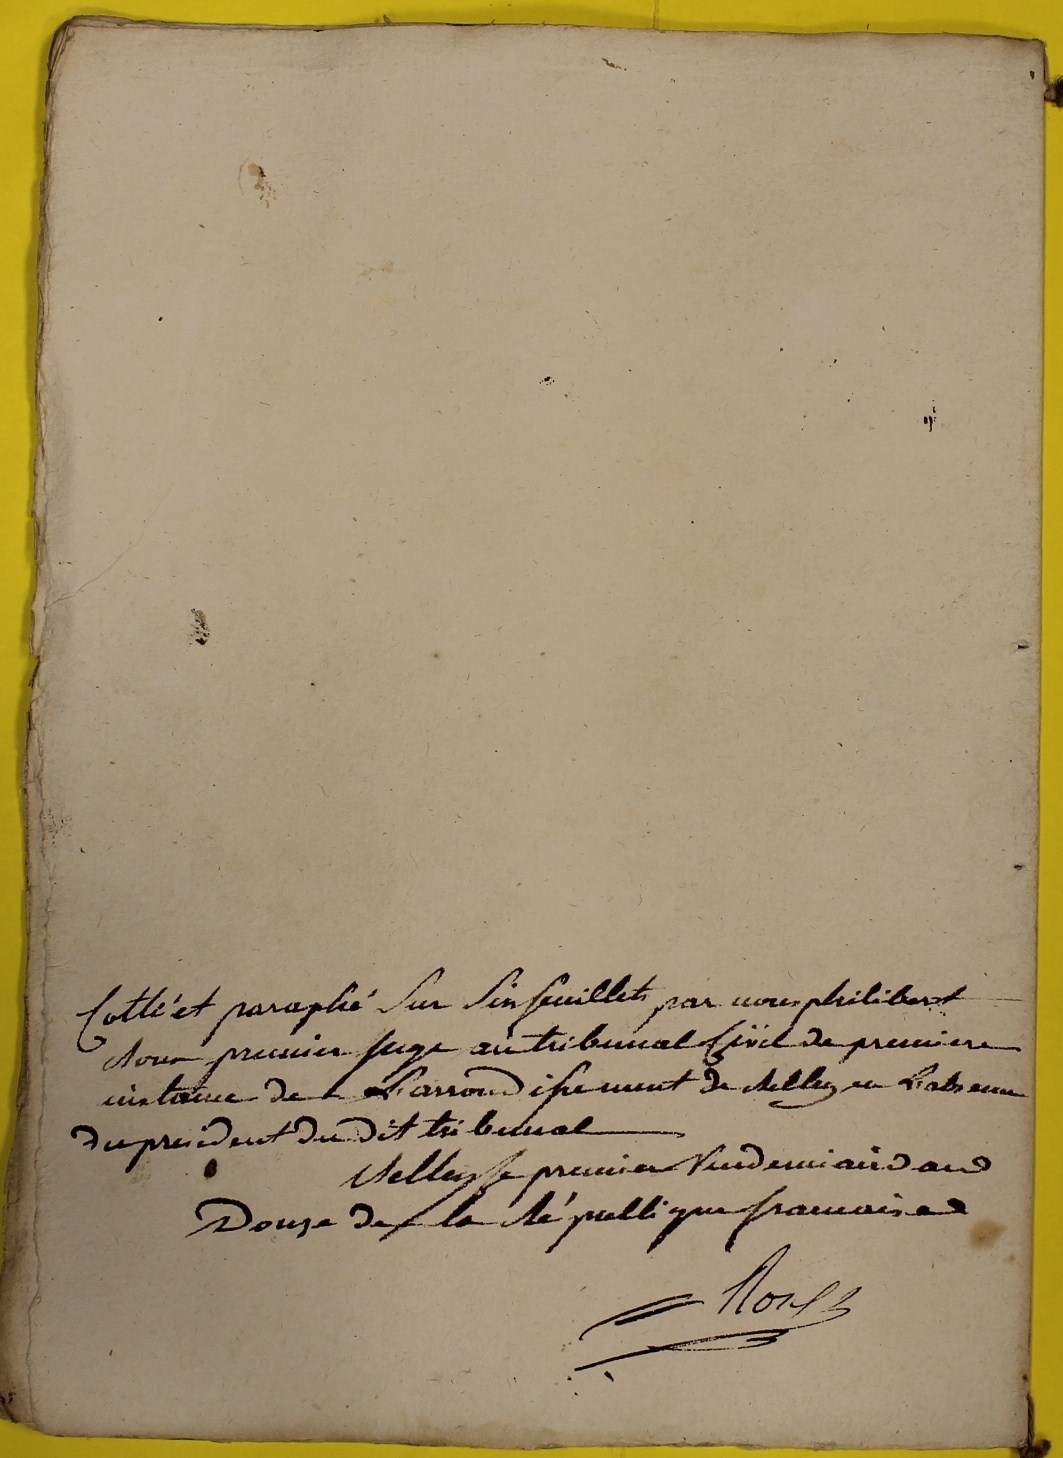 Cotté et paraphé Sur Six feuillets par nous philibert
Roux premier Juge au tribunal Civil de premiere
instance de L'arrondissement de Belley en L'absence
du president du dit tribunal
Belley le premier Vendemiaire an
Douze de la République francaise